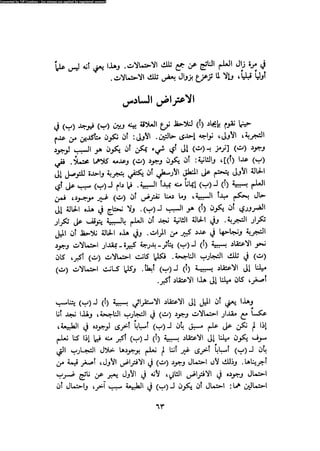 في مرة زال العلم الناتج عن جمع تلك الاحتمالات. وهذا يعني أنه ليس علماً
أولياً قبلياً، وإلا لما تزعزع بزوال بعض تلك الاحتمالات.
الاعتراض السادس
حينما نقوم بإيجاد (أ) لنلاحظ نوع العلاقة بينه وبين (ب) فيوجد (ب) في
التجربة، نواجه إحدى حالتين: الأولى: أن يكون لدينا استعداد من عدم
وجود (ت) [ونرمز بـ (ت) إلى أي شيء يمكن أن يكون هو السبب لوجود
(ب) عدا (أ)]، والثانية: أن يكون (ت) وجوده وعدمه كلاهما محتملاً. ففي
الحالة الأولى يتحتم على المنطق الأرسطي أن يكتفي بتجربة واحدة للتوصل إلى
العلم بسببية (أ) لـ (ب) انطلاقاً منه لمبدأ السببية. إذ ما دام (ب) ليس له أي سبب على
حال بحكم مبدأ السببية، وما دمنا نفترض أن (ت) غير موجود، فمن
الضروري أن يكون (أ) هو السبب لـ (ب). ولا نحتاج في هذه الحالة إلى
تكرار التجربة. وفي الحالة الثانية نجد أن العلم بالسببية يتوقف على تكرار
التجربة ونجاحها في عدد كبير من المرات. وفي هذه الحالة نلاحظ أن الميل إلى
نحو الاعتقاد بسببية (أ) لـ (ب) يتأثر بدرجة كبيرة بمقدار احتمالات وجود
(ت) في تلك التجارب الناجحة. فكلما كانت احتمالات (ت) أكبر، كان
ميلنا إلى الاعتقاد بسببية (أ) لـ (ب) أبطأ. وكلما كانت احتمالات (ت)
أصغر، كان ميلنا إلى الاعتقاد أكبر.
وهذا يعني أن الميل إلى الاعتقاد الاستقرائي بسببية (أ) لـ (ب) يتناسب
عكساً مع مقدار احتمالات وجود (ت) في التجارب الناجحة، ولهذا نجد أننا
إذا لم نكن على علم مسبق بأن لـ (ب) أسباباً أخرى موجودة في الطبيعة،
سوف يكون ميلنا إلى الاعتقاد بسببية (أ) لـ (ب) أكبر منه فيما إذا كنا نعلم
بأن لـ (ب) أسباباً أخرى غير أننا لم نعلم بوجودها خلال التجارب التي
أجريناها. وذلك لأن احتمال وجود (ت) في الافتراض الأول، أصغر قيمة من
احتمال وجوده في الافتراض الثاني، لأنه في الأول يعبر عن ناتج ضرب
احتمالين هما: احتمال أن يكون لـ (ب) في الطبيعة سبب آخر، واحتمال أن
٦٣